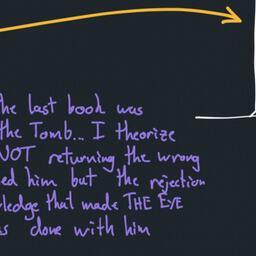 he last book was
the Tomb... I theorize
NOT returning the wrong
ed him but the rejection
ledge that made THE EYE
s done with him